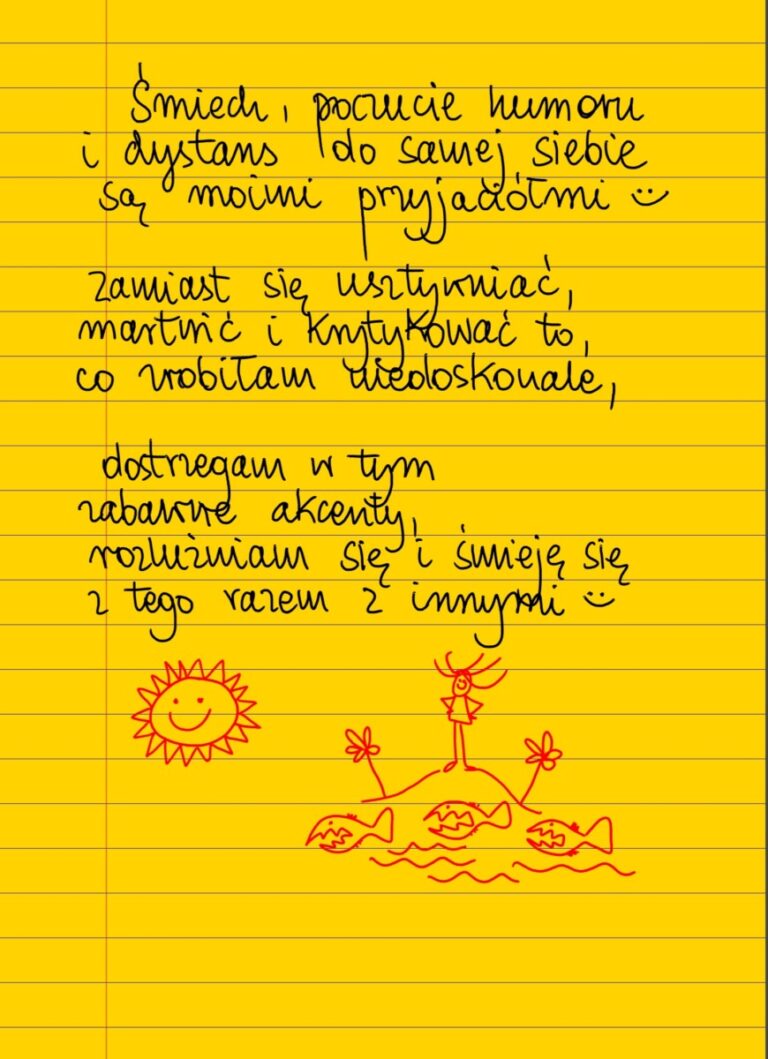 Śmiech, poczucie humoru
i dystans do samej siebie
są moimi przyjaciółmi :)
zamiast się usztywniać,
martwić i krytykować to,
co zrobiłam niedoskonale,
dostrzegam w tym
zabawne akcenty,
rozluźniam się i śmieję się
z tego razem z innymi :)